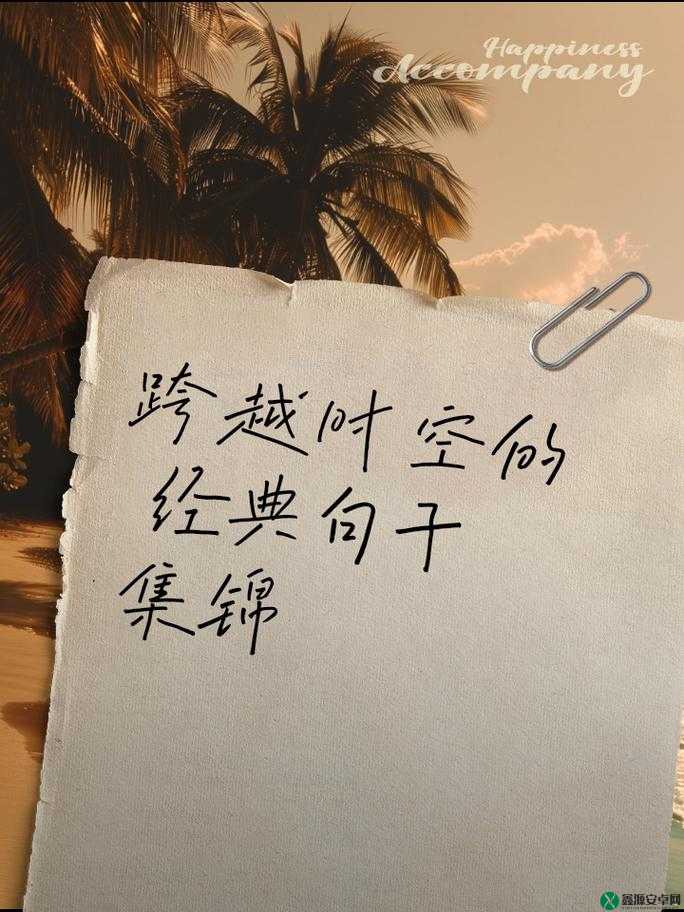 Happiness
Accompany
跨越时空的
经典句子
集锦
鑫源安卓网